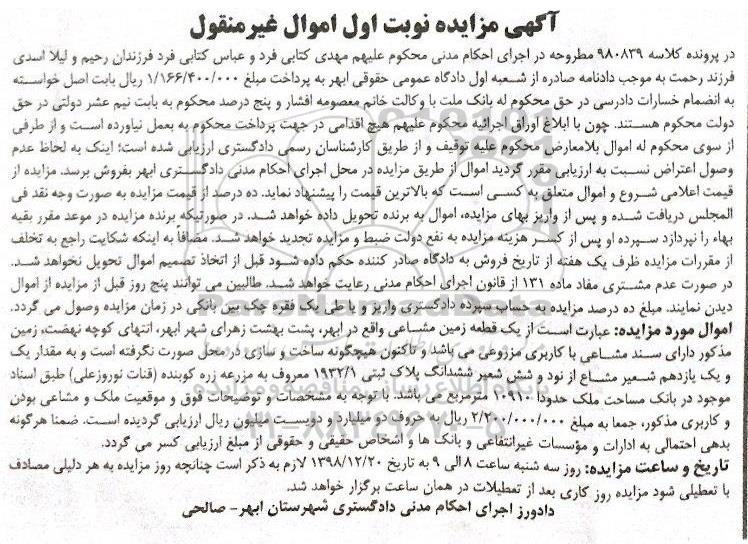 آگهی مزایده نوبت اول اموال غیرمنقول
در پرونده کلاسه ۹۸۰۸۳۹ مطروحه در اجرای احکام مدنی محکوم علیهم مهدی کتابی فرد و عباس کتابی فرد فرزندان رحیم و لیلا اسدی
فرزند رحمت به موجب دادنامه صادره از شعبه اول دادگاه عمومی حقوقی ابهر به پرداخت مبلغ ۱/۱۶۶/۴۰۰/۰۰۰ ریال بابت اصل خواسته
به انضمام خسارات دادرسی در حق محکوم له بانک ملت با وکالت خانم معصومه افشار و پنج درصد محکوم به بابت نیم عشر دولتی در حق
دولت محکوم هستند. چون با ابلاغ اوراق اجرائیه محکوم علیهم هیچ اقدامی در جهت پرداخت محکوم به بعمل نیاورده است و از طرفی
از سوی محکوم له اموال بلامعارض محکوم علیه توقیف و از طریق کارشناسان رسمی دادگستری ارزیابی شده است؛ اینک به لحاظ عدم
وصول اعتراض نسبت به ارزیابی مقرر گردید اموال از طریق مزایده در محل اجرای احکام مدنی دادگستری ابهر بفروش برسد. مزایده از
قیمت اعلامی شروع و اموال متعلق به کسی است که بالاترین قیمت را پیشنهاد نماید. ده درصد از قیمت مزایده به صورت وجه نقد فی
المجلس دریافت شده و پس از واریز بهای مزایده، اموال به برنده تحویل داده خواهد شد. در صورتیکه برنده مزایده در موعد مقرر بقیه
بهاء را نپردازد سپرده او پس از کسر هزینه مزایده به نفع دولت ضبط و مزایده تجدید خواهد شد. مضافاً به اینکه شکایت راجع به تخلف
از مقررات مزایده ظرف یک هفته از تاریخ فروش به دادگاه صادر کننده حکم داده شود قبل از اتخاذ تصمیم اموال تحویل نخواهد شد.
در صورت عدم مشتری مفاد ماده ۱۳۱ از قانون اجرای احکام مدنی رعایت خواهد شد. طالبین می توانند پنج روز قبل از مزایده از اموال
دیدن نمایند. مبلغ ده درصد مزایده به حساب سپرده دادگستری واریز و یا طی یک فقره چک بین بانکی در زمان مزایده وصول می گردد.
اموال مورد مزایده: عبارت است از یک قطعه زمین مشاعی واقع در ابهر، پشت بهشت زهرای شهر ابهر، انتهای کوچه نهضت، زمین
مذکور دارای سند مشاعی با کاربری مزروعی می باشد و تاکنون هیچگونه ساخت و سازی در محل صورت نگرفته است و به مقدار یک
و یک یازدهم شعیر مشاع از نود و شش شعیر ششدانگ پلاک ثبتی ۱۹۳۲/۱ معروف به مزرعه زره کوبنده (قنات نوروزعلی) طبق اسناد
موجود در بانک مساحت ملک حدوداً ۱۰۹۱۰ مترمربع می باشد. با توجه به مشخصات و توضیحات فوق و موقعیت ملک و مشاعی بودن
و کاربری مذکور، جمعا به مبلغ ۲/۲۰۰/۰۰۰/۰۰۰ ریال به حروف دو میلیارد و دویست میلیون ریال ارزیابی گردیده است. ضمنا هرگونه
بدهی احتمالی به ادارات و مؤسسات غیرانتفاعی و بانک ها و اشخاص حقیقی و حقوقی از مبلغ ارزیابی کسر می گردد.
تاریخ و ساعت مزایده: روز سه شنبه ساعت ۸ الی ۹ به تاریخ ۱۳۹۸/۱۲/۲۰ لازم به ذکر است چنانچه روز مزایده به هر دلیلی مصادف
با تعطیلی شود مزایده روز کاری بعد از تعطیلات در همان ساعت برگزار خواهد شد.
دادورز اجرای احکام مدنی دادگستری شهرستان ابهر- صالحی
ParsNamadData
پایگاه اطلاع رسانی مناقصه و مزایده
۰۲۱-۸۸۳۴۹۶۷۰-۵